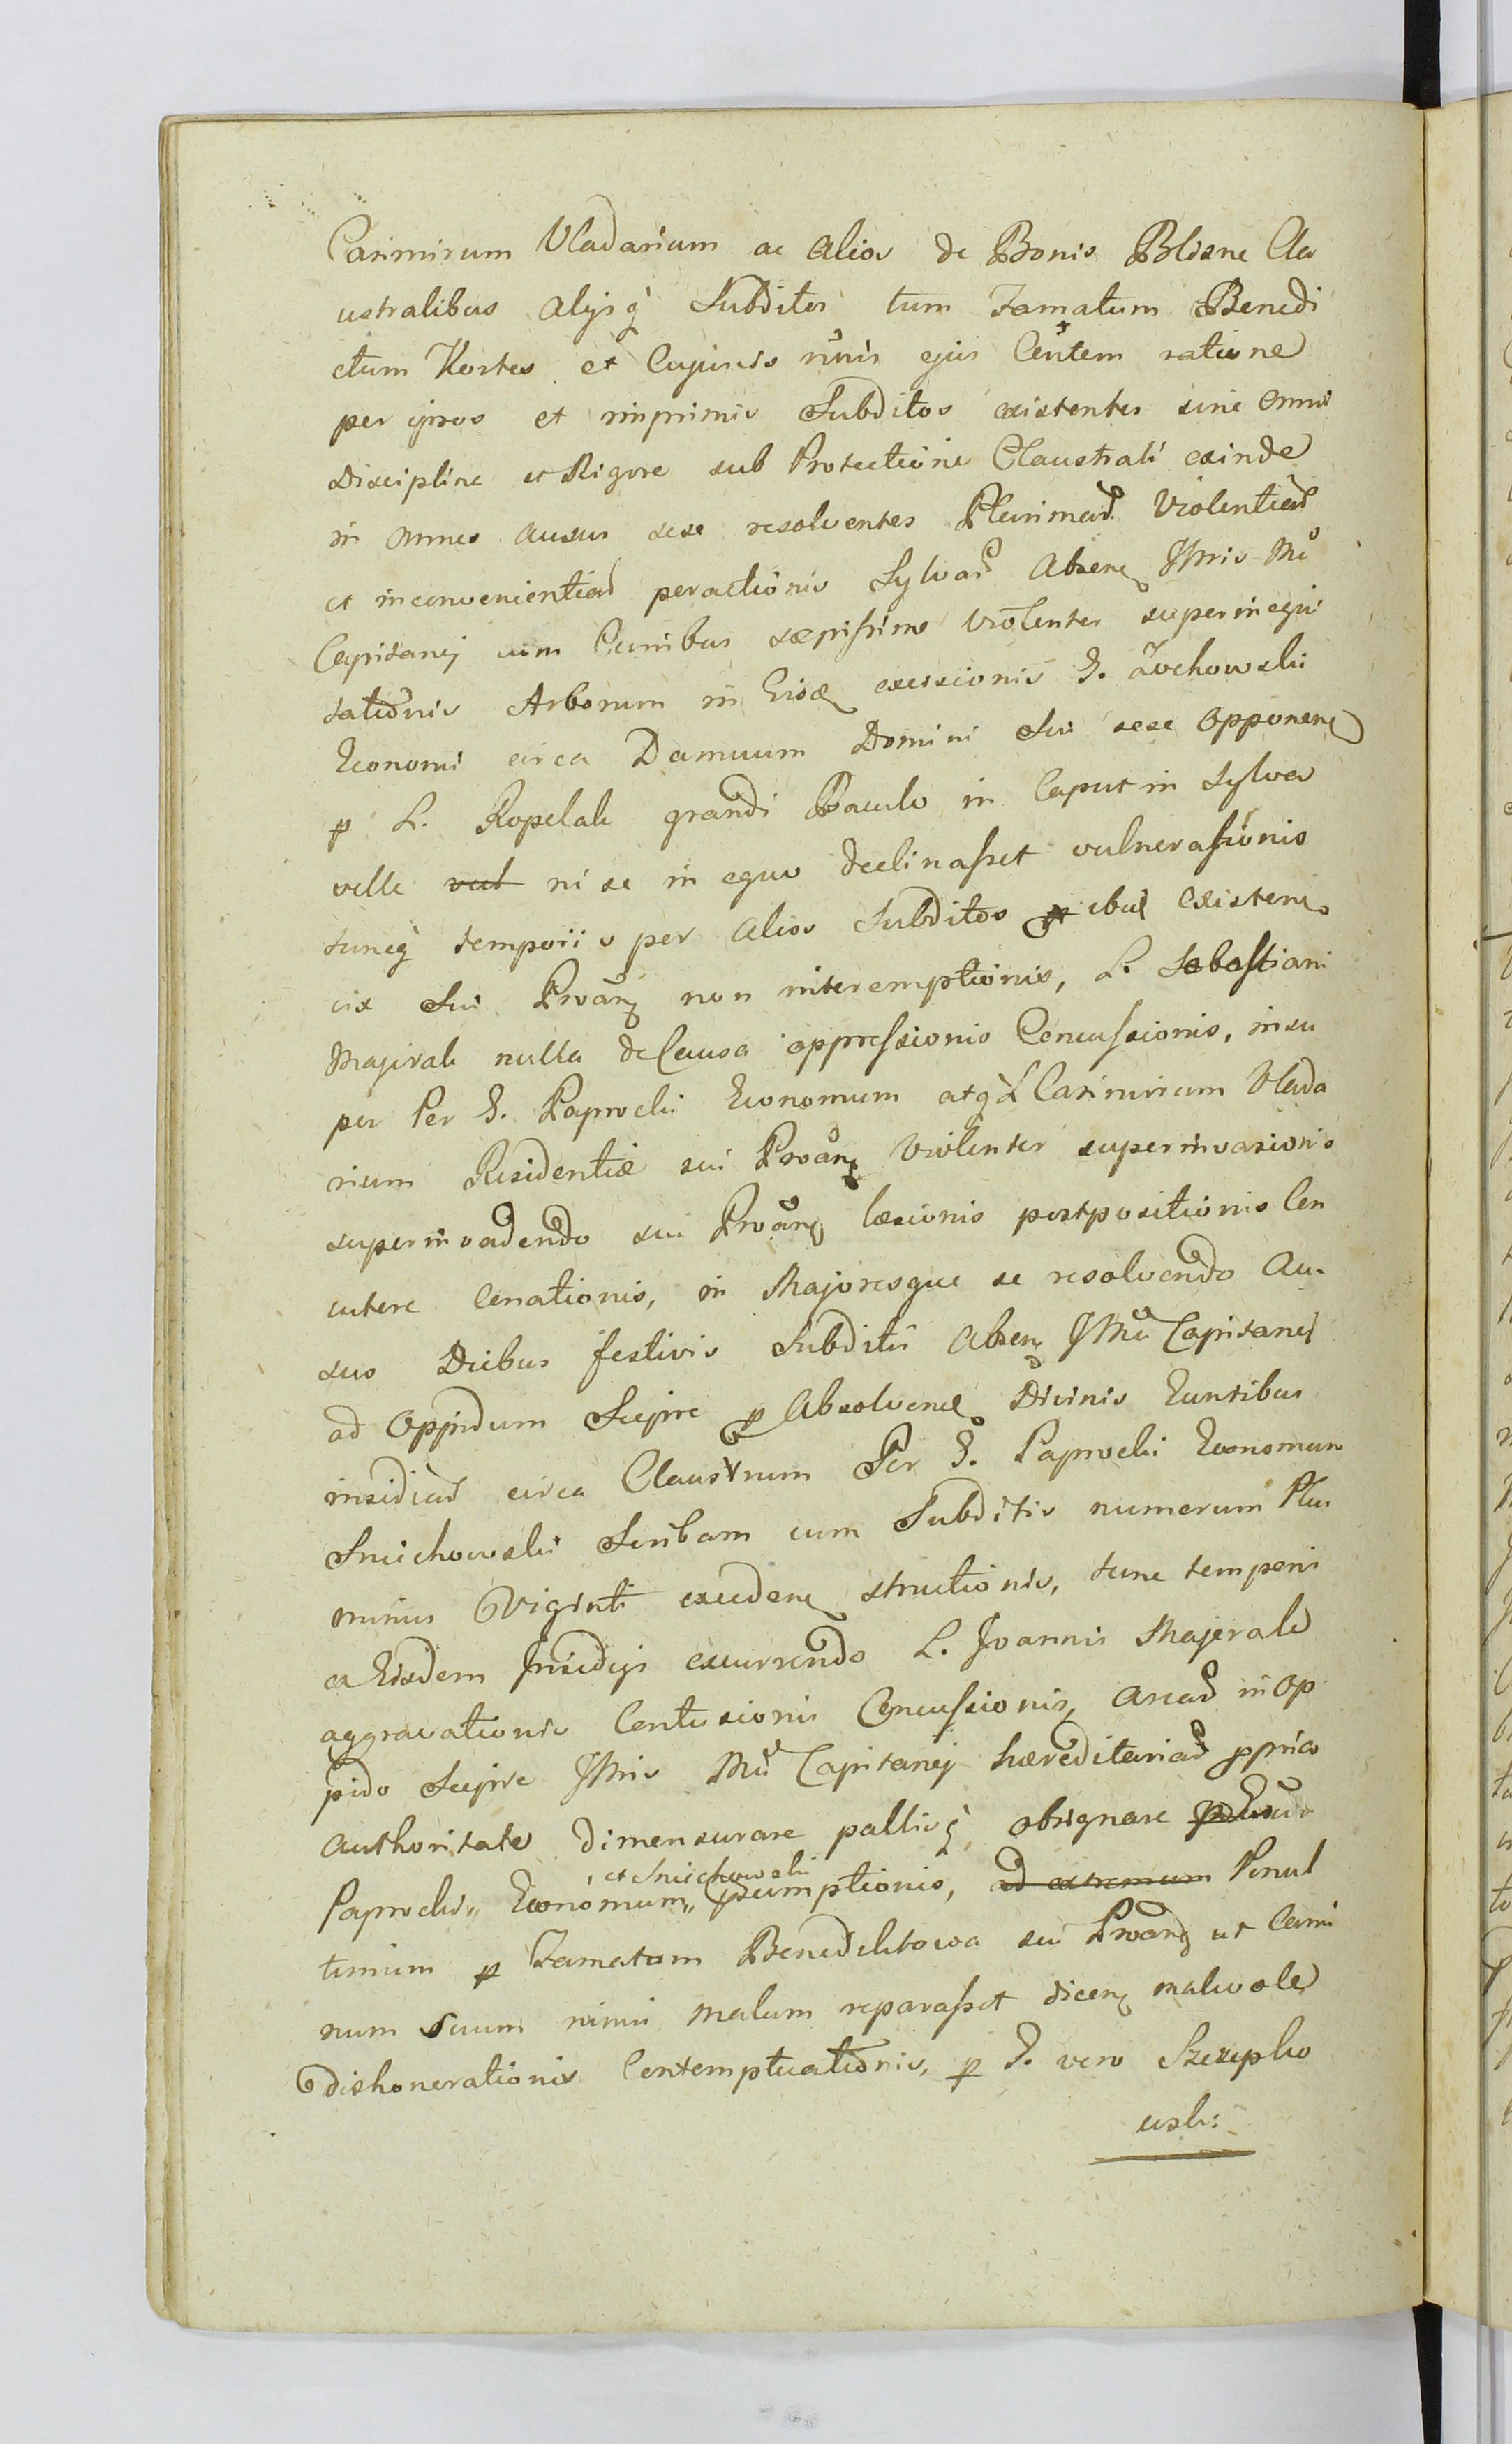 Casimirum Vladarium ac Alios de Bonis Blisne Cla
ustralibus Alijsq Subditos tum Famatum Benedi
ctum Kortes et Cujusvis ejus ratione
per ipsos et imprimis Subditos existentes sine Omni
Discipline et Rigore sub Protectione Claustrali exinde
in Omnes Ausus sese resolventes Plurimar Violentiar
et inconvenientiar peractionis Sylvar Absenq Illmis Mi
Capitanej cum Curribus sæpissime Violenter superinequi
tationis Arborum in Eisq excisionis G. Zochowski
Economi circa Damnum Domini Sui sese Opponenq
p L. Ropelak grandi Baculo in Caput in Sylva
velle vul ni se in equo declinasset vulnerassionis
tuncq temporis per Alios Subditos existenq
vix Sui Proanq non interemptionis, L. Sebastiani
Majerak nulla de Causa oppressionis Concussionis, insu
per Per G. Paprocki Economum atq L Casimirum Vlada
rium Residentiæ sui Proanq Violenter superinvasionis
superinvadendo sui Proanq læsionis postpositionis Con
cutere Conationis, in Majoresque se resolvendo Au-
sus Diebus festivis Subditis Absenq Illmi Capitanej
ad Oppidum Sczire p Absolvend Divinis Euntibus
insidiar circa Claustrum Per G. Paprocki Economum
Sniechowski Scribam cum Subditis numerum Plus
minus Viginti excedenq structionis, tunc temporis
ex Eisdem Insidijs excurrendo L. Joannis Majerak
aggravationis Contusionis Concussionis, Arear in Op
pido Sczire Illmis Mi Capitanej hæreditariar ppria
Authoritate dimensurare pallisq obsignare
Paprocki,, Economum,, et Sniechowski psumptionis, ad extremum Penul
timum p Famatam Benedictowa sui Proanq ut Cami
num suum nimis malum reparasset dicenq malevole
dishonerationis Contemptuationis, p G. vero Szczepko
wsk: